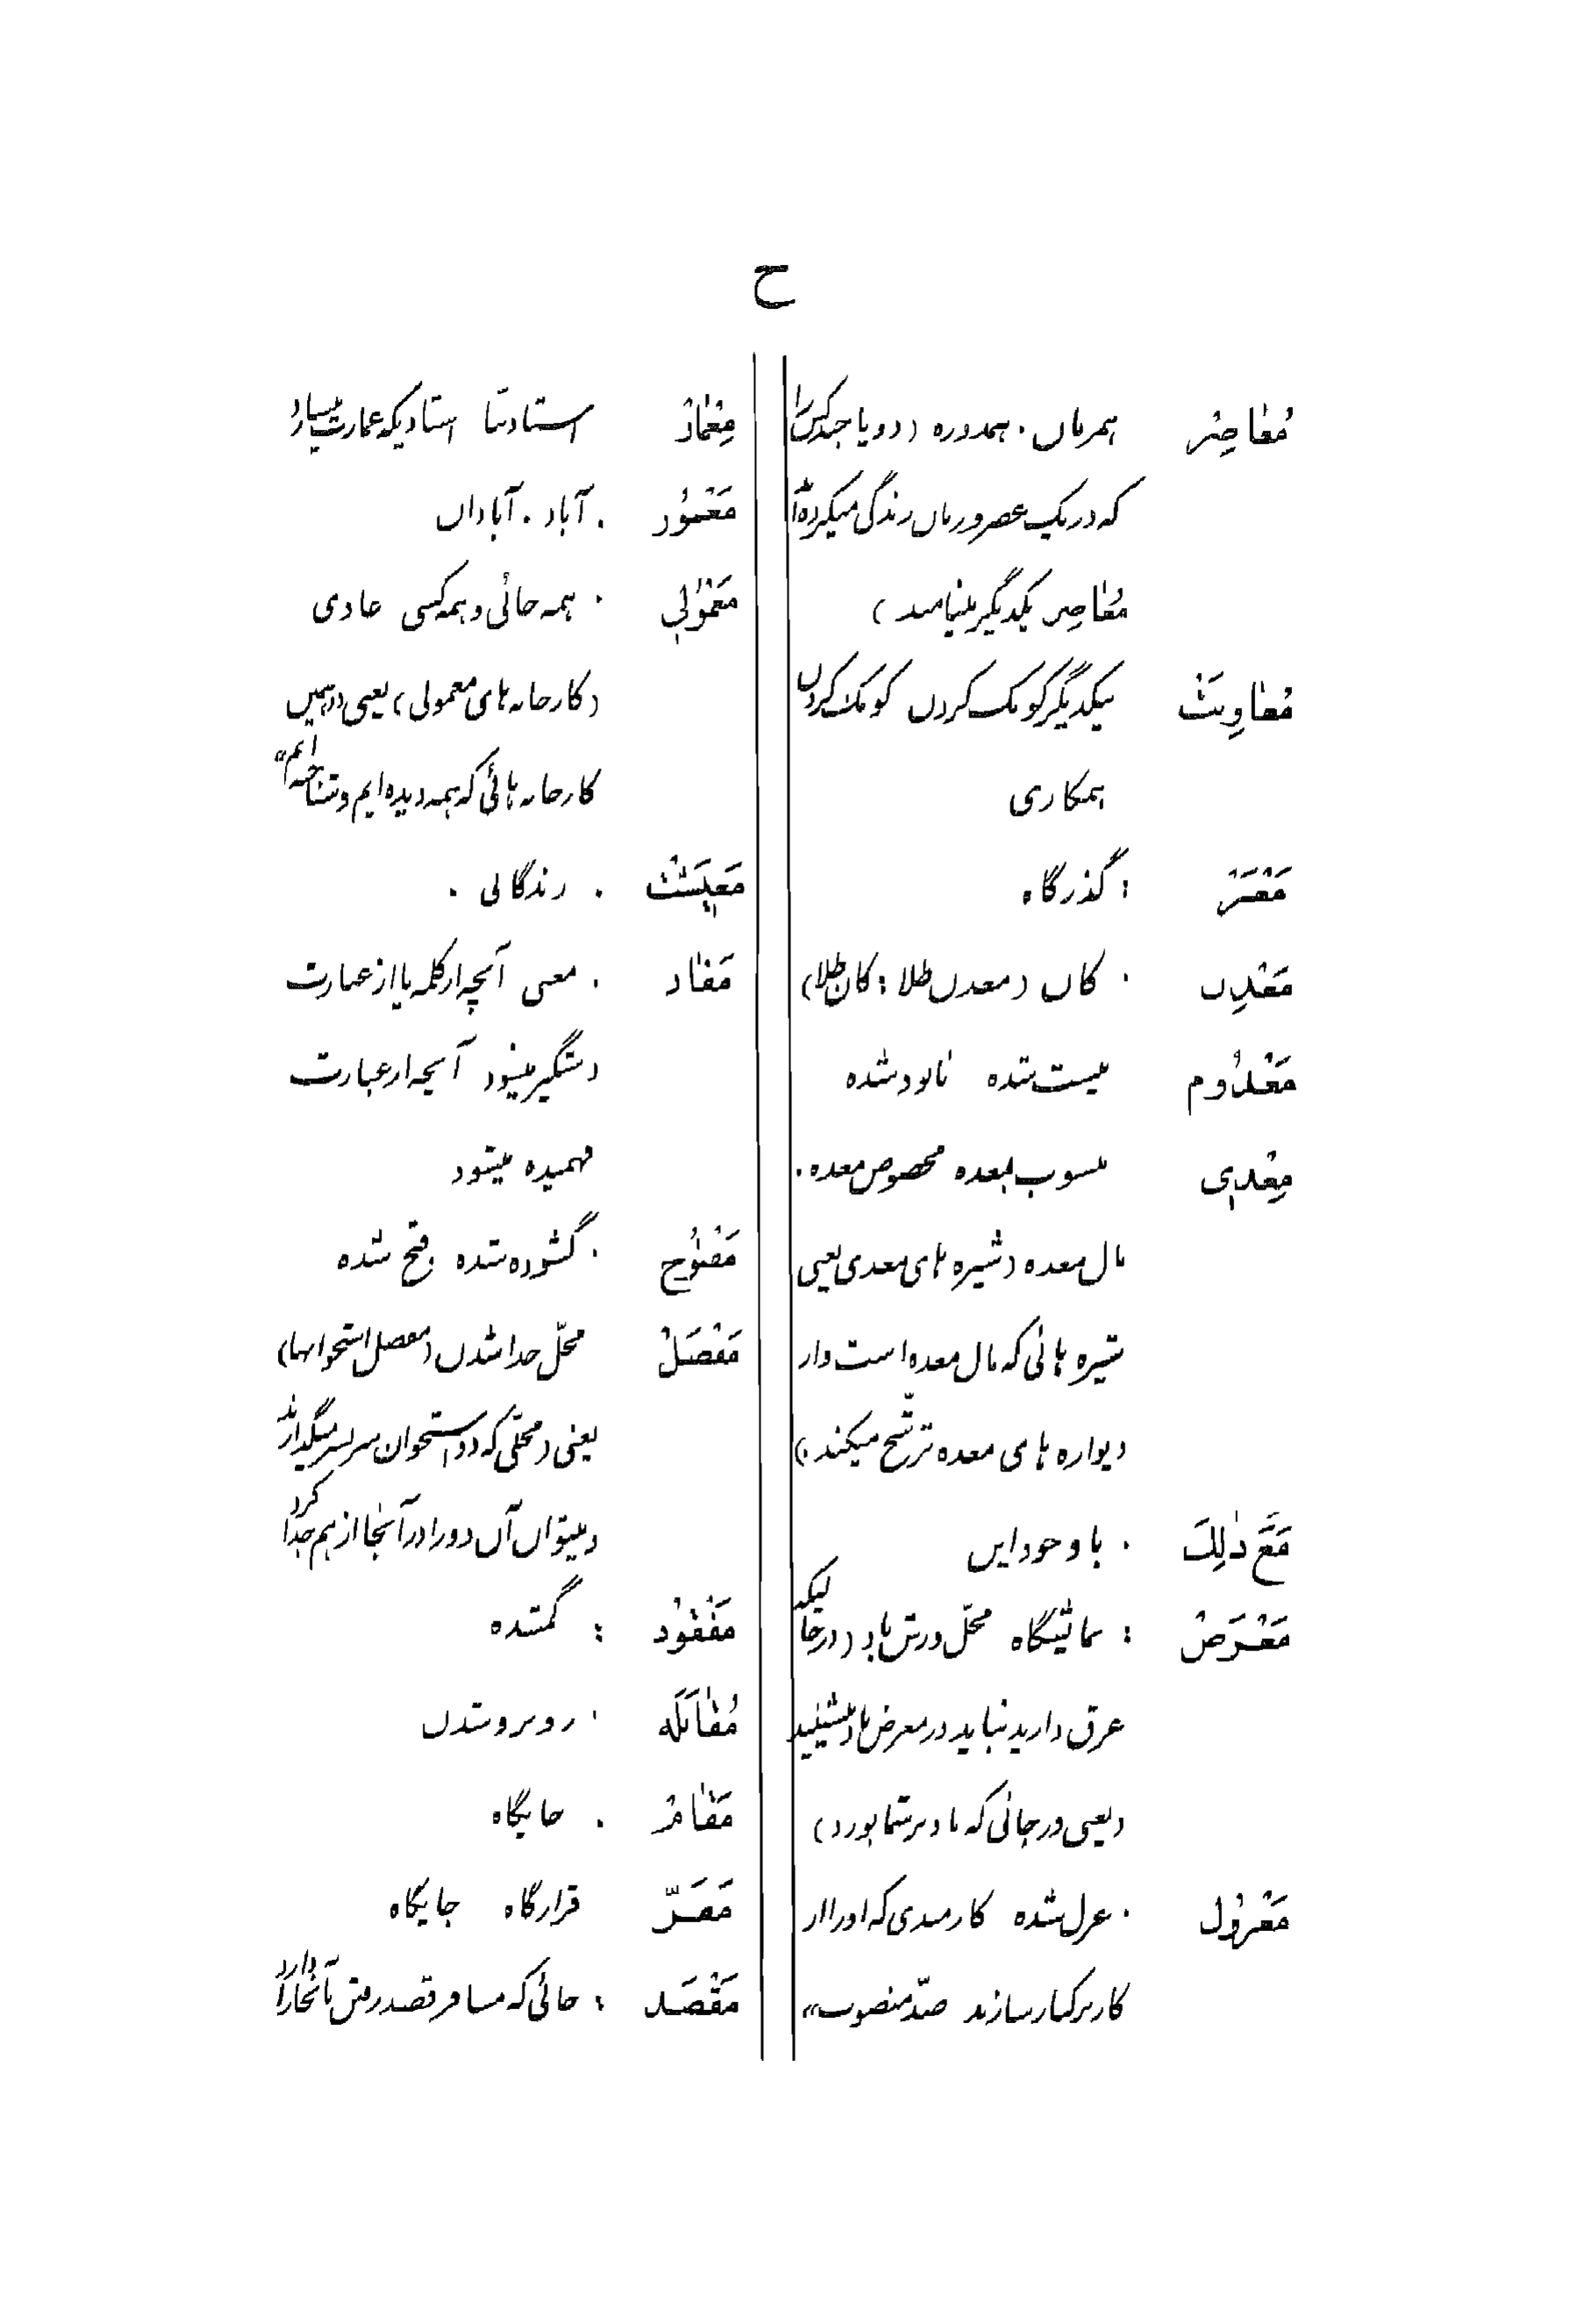 ح
مُعاصِرْ همزمان . همدوره (دو یا چند کس را
که در یک عصر و زمان زندگی میکرده‌اند
مُعاصِر یکدیگر مینامند)
مُعاوِنَتْ بیکدیگر کومک کردن کومک کردن
همکاری
مَعْبَرْ : گذرگاه
مَعْدِن . کان (معدن طلا : کان طلا)
مَعْدُوم نیست شده نابود شده
مِعْدِی منسوب بمعده مخصوص معده .
مال معده (شیره های معدی یعنی
شیره هائی که مال معده است و از
دیواره های معده ترشّح میکند .)
مَعَ ذٰلِکَ . با وجود این
مَعْرَضْ : نمایشگاه محلّ وزش باد (در حالیکه
عرق دارید نباید در معرض باد بنشینید
یعنی در جائی که باد بر شما بوزد)
مَعْزُول . عزل شده کارمندی که او را از
کار برکنار سازند ضدّ منصوب"
مِعْمارْ استاد بنّا استادیکه عمارت میسازد
مَعْمُور . آباد . آبادان
مَعْمُولی . همه جائی و همه کسی عادی
(کارخانه های معمولی) یعنی در همین
کارخانه هائی که همه دیده ایم و شناخته ایم"
مَعِیشَتْ . زندگانی .
مَفاد . معنی آنچه از کلمه یا از عبارت
دستگیر میشود آنچه از عبارت
فهمیده میشود
مَفْتُوح . گشوده شده فتح شده
مَفْصَلْ محلّ جدا شدن (مفصل استخوانها)
یعنی (محلّی که دو استخوان سر بسر میگذارند
و میتوان آن دو را در آنجا از هم جدا کرد
مَفْقُود : گمشده
مُقابَلَه . روبرو شدن
مَقامْ . جایگاه
مَقَرّ قرارگاه جایگاه
مَقْصَد : جائی که مسافر قصد رفتن بآنجا را دارد